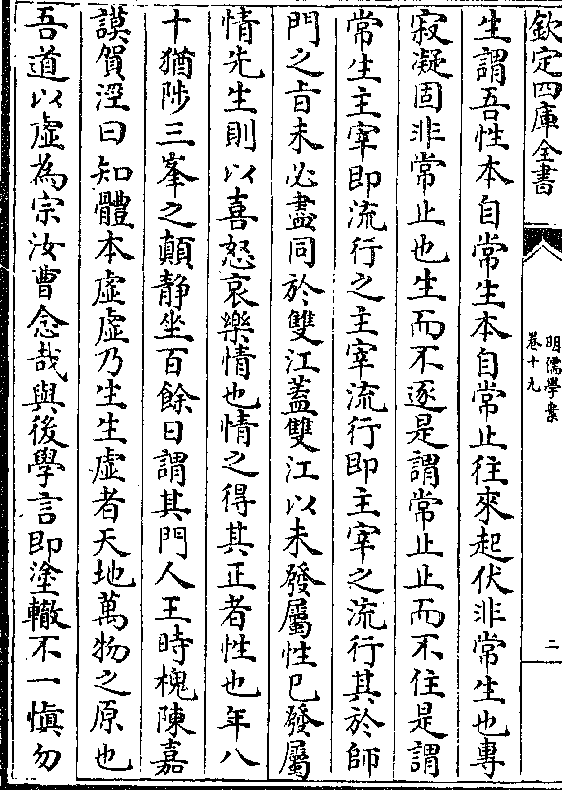 欽定四庫全書
明儒學案
卷十九
二
生謂吾性本自常生本自常止往來起伏非常生也專
寂凝固非常止也生而不逐是謂常止止而不住是謂
常生主宰即流行之主宰流行即主宰之流行其於師
門之旨未必盡同於雙江蓋雙江以未發屬性已發屬
情先生則以喜怒哀樂情也情之得其正者性也年八
十猶陟三峯之顛静坐百餘日謂其門人王時槐陳嘉
謨賀涇曰知體本虛虛乃生生虛者天地萬物之原也
吾道以虛為宗汝曹念哉與後學言即塗轍不一慎勿